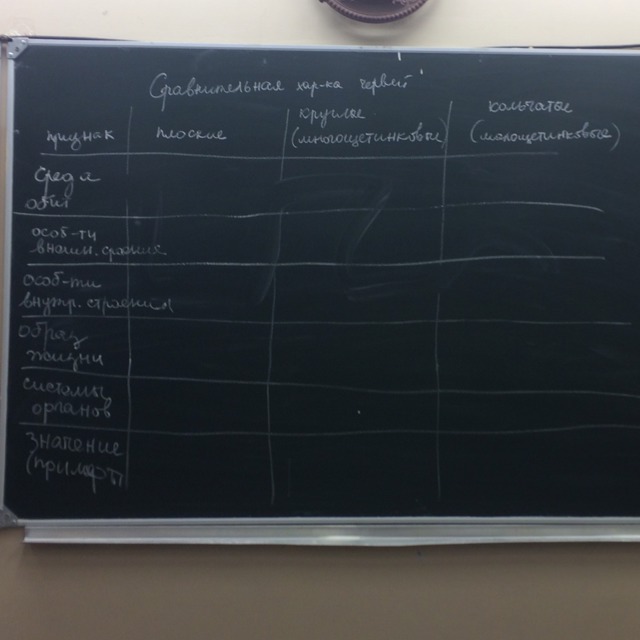 Сравнительная хар-ка червей
признак
плоские
круглые
(многощетинковые)
кольчатые
(малощетинковые)
среда
обит
особ-ти
внешн. строения
особ-ти
внутр. строения
образ
жизни
системы
органов
значение
(примеры